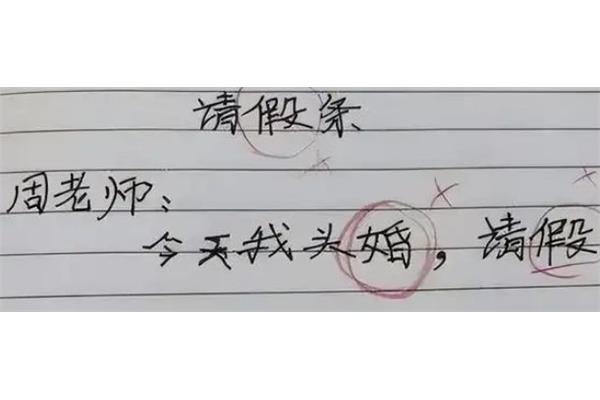 请假条
周老师：
今天我头婚，请假